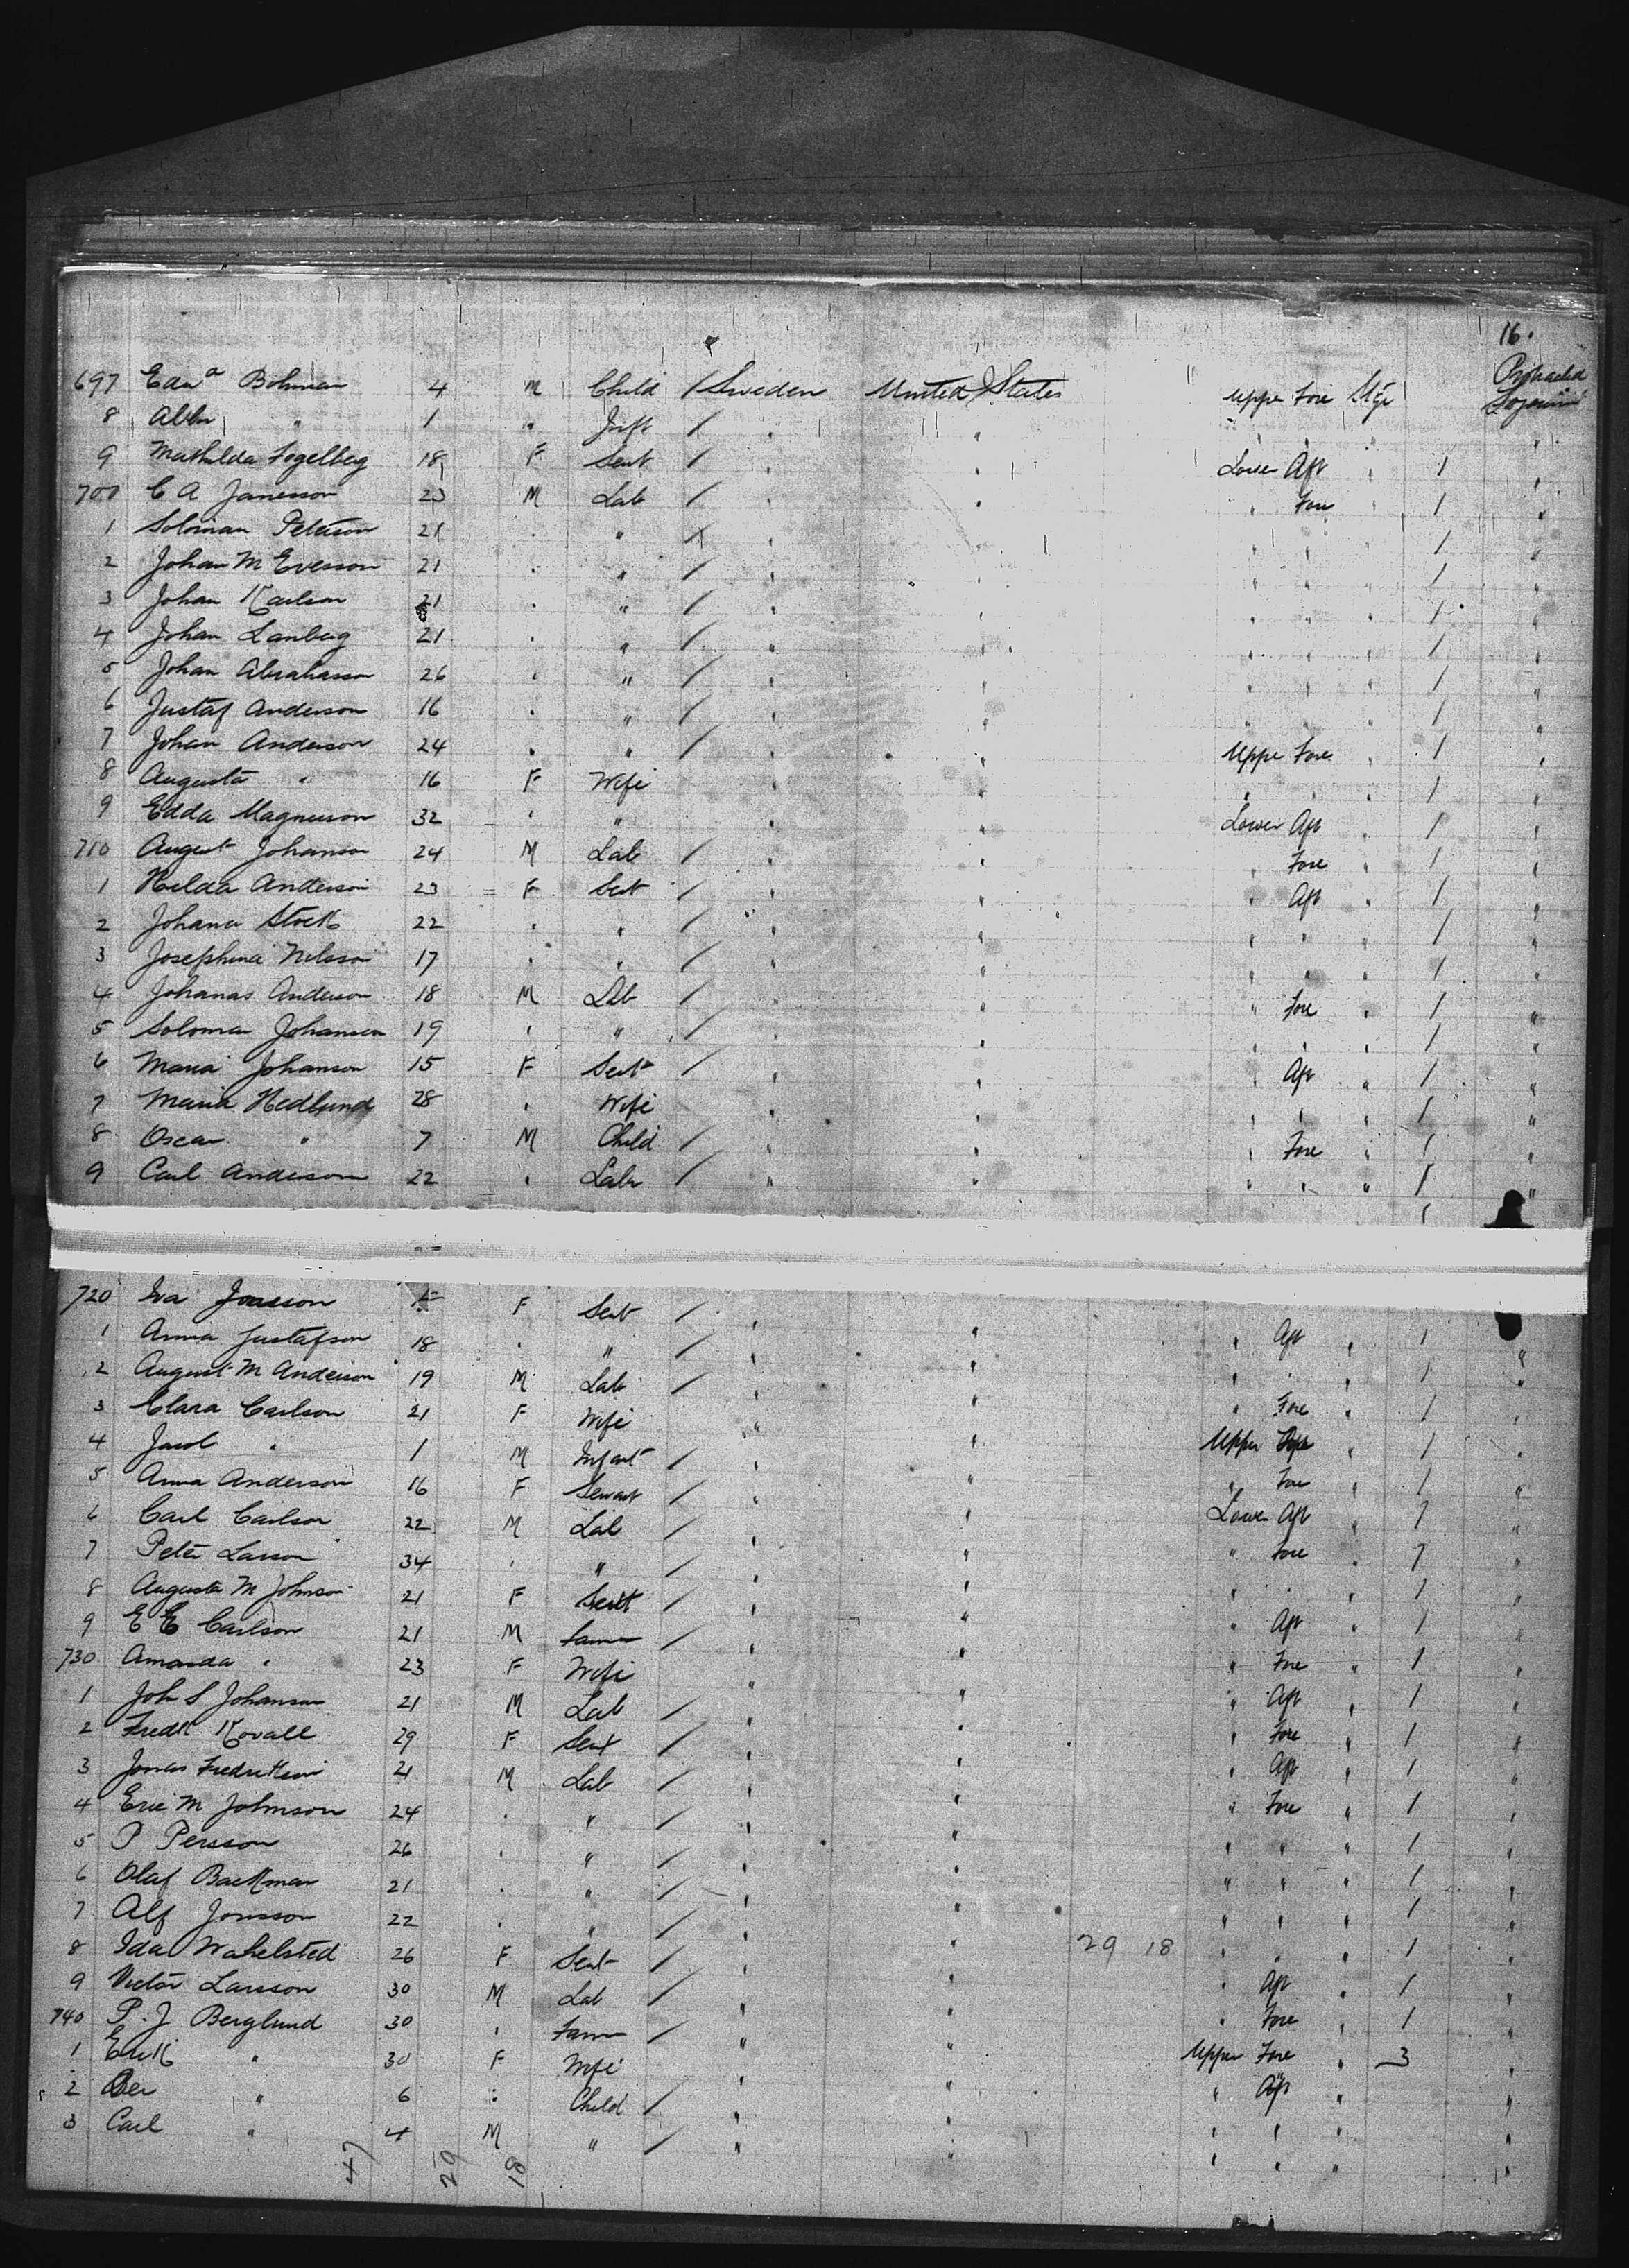 16.
Protracted Sojourn
697 Edwᵃ Bohman 4 M Child / Sweden United States Upper Fore Stge
8 " 1 " Inft / " " " " " "
9 Mathilda Fogelberg 18 F Sert / " " Lower Aft " 1 "
700 C A Janesson 23 M Lab / " " " Fore " 1 "
1 Soloman Peterson 21 " " / " " " " " 1 "
2 Johan M Evesson 21 " " / " " " " " 1 "
3 Johan Karlson 21 " " / " " " " " 1 "
4 Johan Lanberg 21 " " / " " " " " 1 "
5 Johan Abrahasson 26 " " / " " " " " 1 "
6 Gustaf Anderson 16 " " / " " " " " 1 "
7 Johan Anderson 24 " " / " " Upper Fore 1 "
8 Augusta " 16 F Wife " " " " " 1 "
9 Edda Magnusson 32 " " " " Lower Aft " 1 "
710 August Johanson 24 M Lab / " " " Fore " 1 "
1 Hilda Anderson 23 F Sert / " " " Aft " 1 "
2 Johana Stock 22 " " / " " " " " 1 "
3 Josephina Nelsson 17 " " / " " " " " 1 "
4 Johanas Anderson 18 M Lab / " " " Fore " 1 "
5 Soloman Johanson 19 " " / " " " " " 1 "
6 Maria Johanson 15 F Sert / " " " Aft " 1 "
7 Maria Hedlund 28 " Wife " " " " " 1 "
8 Oscar " 7 M Child / " " " Fore " 1 "
9 Carl Anderson 22 " Labr / " " " " " 1 "
720 Eva F Sert / " " " Aft " 1 "
1 Anna Gustafson 18 " " / " " " " " 1 "
2 August M Anderson 19 M Lab / " " " Fore " 1 "
3 Clara Carlson 21 F Wife " " Upper " 1 "
4 " 1 M Infant / " " " Fore " 1 "
5 Anna Anderson 16 F Servant / " " Lower Aft " 1 "
6 Carl Carlson 22 M Lab / " " " Fore " 1 "
7 Peter Larson 34 " " / " " " " " 1 "
8 Augusta M Johnson 21 F Sert / " " " Aft " 1 "
9 E E Carlson 21 M Farmer / " " " Fore " 1 "
730 Amanda " 23 F Wife " " " Aft " 1 "
1 Joh S Johanson 21 M Lab / " " " Fore " 1 "
2 Fredk Kovall 29 F Sert / " " " Aft " 1 "
3 Jonas 21 M Lab / " " " Fore " 1 "
4 Eric M Johnson 24 " " / " " " " " 1 "
5 P Persson 26 " " / " " " " " 1 "
6 Olaf Backman 21 " " / " " " " " 1 "
7 Alf Jonsson 22 " " / " " " " " 1 "
8 Ida Wahelsted 26 F Sert / " " 29 18 " Aft " 1 "
9 Victor Larsson 30 M Lab / " " " Fore " 1 "
740 P. J Berglund 30 " Farmer / " " Upper Fore " 3 "
1 Erik " 30 F Wife " " " Aft " "
2 " 6 " Child / " " " " " "
3 Carl " 4 M " / " " " " " "
47 29 18